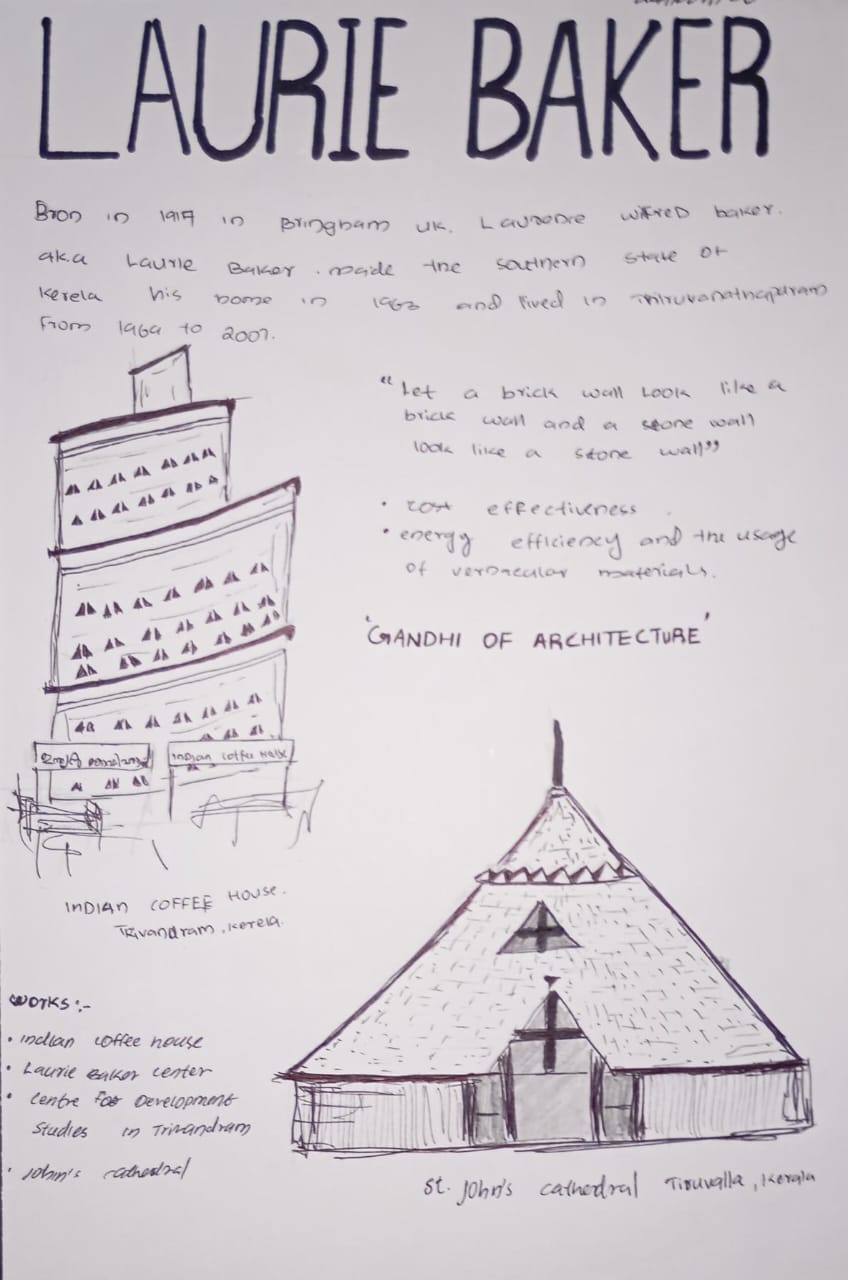 LAURIE BAKER
Bron in 1917 in Bringham UK. Laurence Wifred baker.
a.k.a Laurie Baker. made the southern state of
Kerela his home in 1963 and lived in Thiruvananthapuram
from 1969 to 2007.
"Let a brick wall look like a
brick wall and a stone wall
look like a stone wall"
• cost effectiveness.
• energy efficiency and the usage
of vernacular materials.
'GANDHI OF ARCHITECTURE'
Indian Coffee
INDIAN COFFEE HOUSE.
Trivandram, Kerela.
WORKS :-
• Indian coffee house
• Laurie Baker center
• Centre for Development
Studies in Trivandram
• John's cathedral
St. John's cathedral Tiruvalla, Kerala